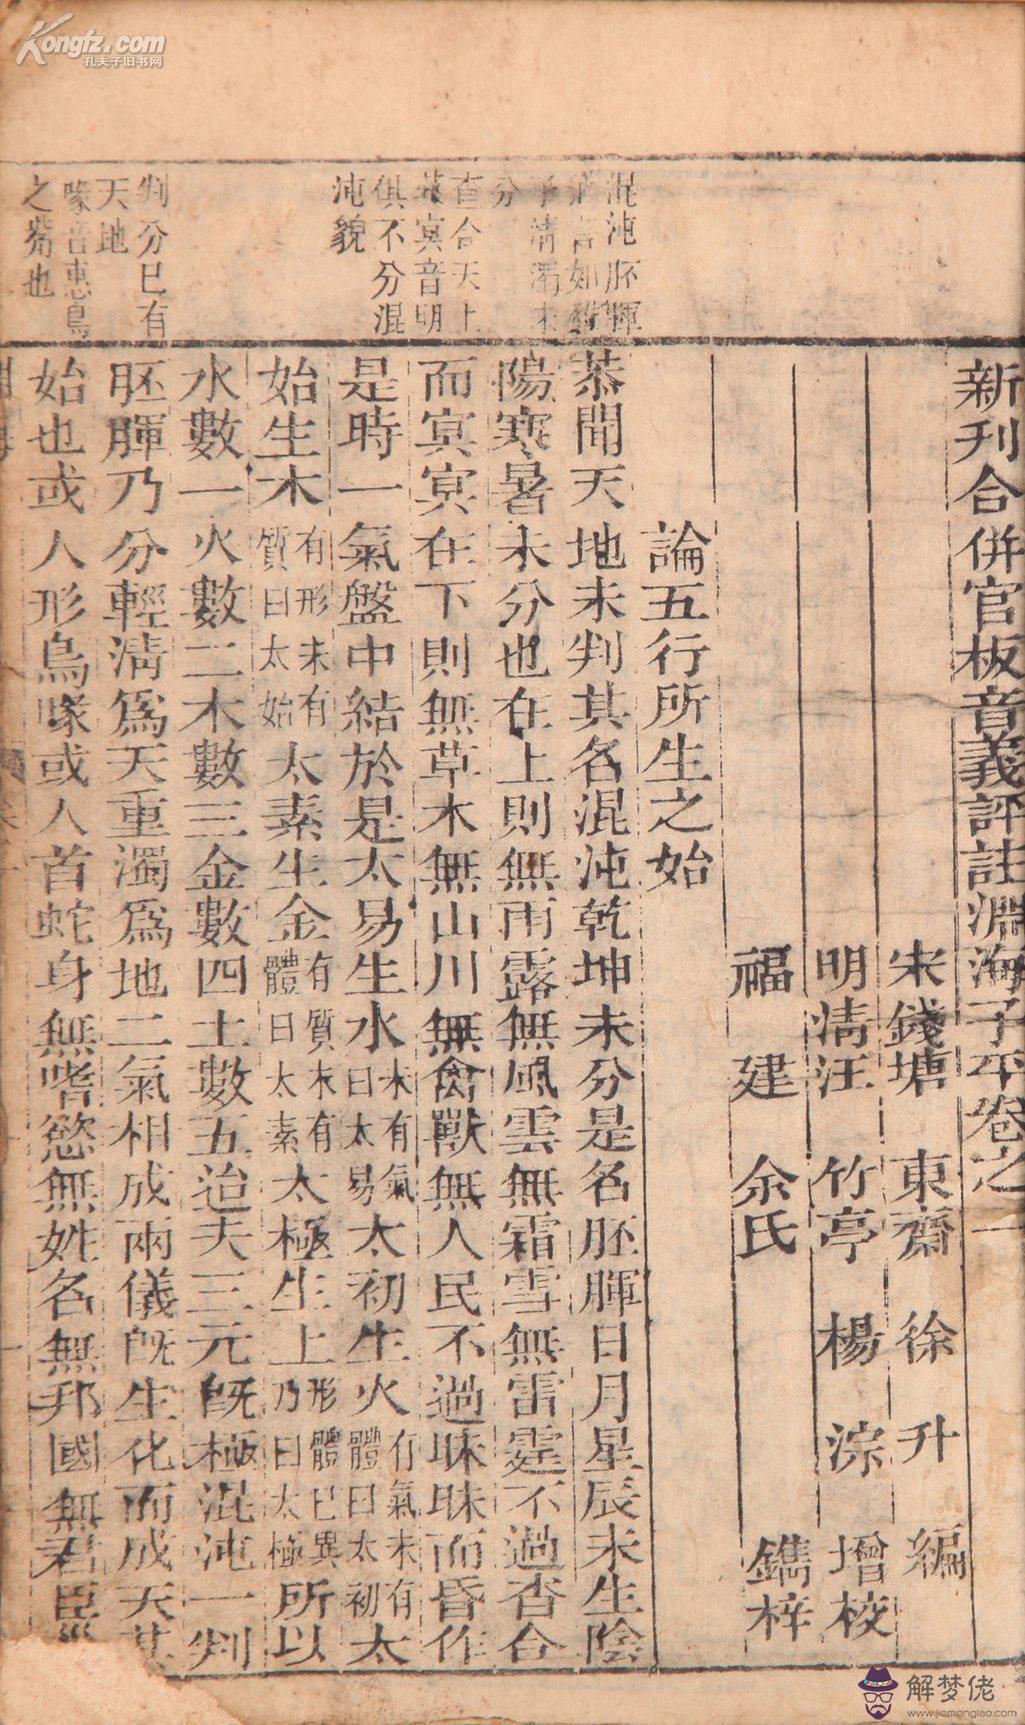 Kongfz.com
孔夫子旧书网
混沌胚腪
言如
子清濁未
分
杳合天上
冥音明
俱不分混
沌貌
判分巳有
天地
喙音惠鳥
之觜也
新刊合併官板音義評註淵海子平卷之一
宋錢塘 東齋 徐升 編
明清汪 竹亭 楊淙 增校
福建 余氏 鐫梓
論五行所生之始
恭聞天地未判其名混沌乾坤未分是名胚腪日月星辰未生陰
陽寒暑未分也在上則無雨露無風雲無霜雪無雷霆不過杳合
而冥冥在下則無草木無山川無禽獸無人民不過昧昧而昏作
是時一氣盤中結於是太易生水未有氣曰太易太初生火有氣未有體曰太初太
始生木有形未有質曰太始太素生金有質未有體曰太素太極生上形體已異乃曰太極所以
水數一火數二木數三金數四土數五迨夫三元旣極混沌一判
胚腪乃分輕淸爲天重濁爲地二氣相成兩儀旣生化而成天其
始也或人形鳥喙或人首蛇身無嗜慾無姓名無邦國無君臣
解梦佬
www.jiemenglao.com